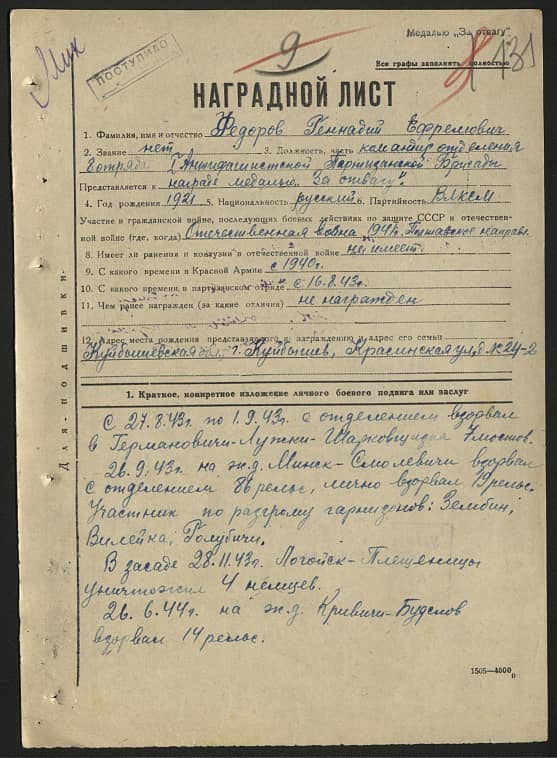 Медалью „За отвагу"
ПОСТУПИЛО
9
131
Все графы заполнять полностью
НАГРАДНОЙ ЛИСТ
1. Фамилия, имя и отчество Федоров Геннадий Ефремович
2. Звание нет 3. Должность, часть командир отделения
8 отряда I Антифашистской Партизанской Бригады
Представляется к награде медалью „За отвагу".
4. Год рождения 1921 5. Национальность русский 6. Партийность ВЛКСМ
Участие в гражданской войне, последующих боевых действиях по защите СССР и отечествен-
ной войне (где, когда) Отечественная война 194 г. Полтавское направл.
8. Имеет ли ранения и контузии в отечественной войне не имеет.
9. С какого времени в Красной Армии с 1940 г.
10. С какого времени в партизанском отряде с 16.8.43 г.
11. Чем ранее награжден (за какие отличия) не награжден
12. Адрес места рождения представляемого к награждению и адрес его семьи
Куйбышевская обл. г. Куйбышев, Красинская ул. д № 24-2
Для подшивки
1. Краткое, конкретное изложение личного боевого подвига или заслуг
С 27.8.43 г. по 1.9.43 г. с отделением взорвал
в Германовичи-Лужки-Шарковщизна 7 мостов.
26.9.43 г. на ж.д. Минск-Смолевичи взорвал
с отделением 86 рельс, лично взорвал 19 рельс.
Участник по разгрому гарнизонов: Зембин,
Вилейка, Голубичи.
В засаде 28.11.43 г. Логойск-Плещеницы
уничтожил 4 немцев.
26.6.44 г. на ж.д. Кривичи-Будслов
взорвал 14 рельс.
1505—4000